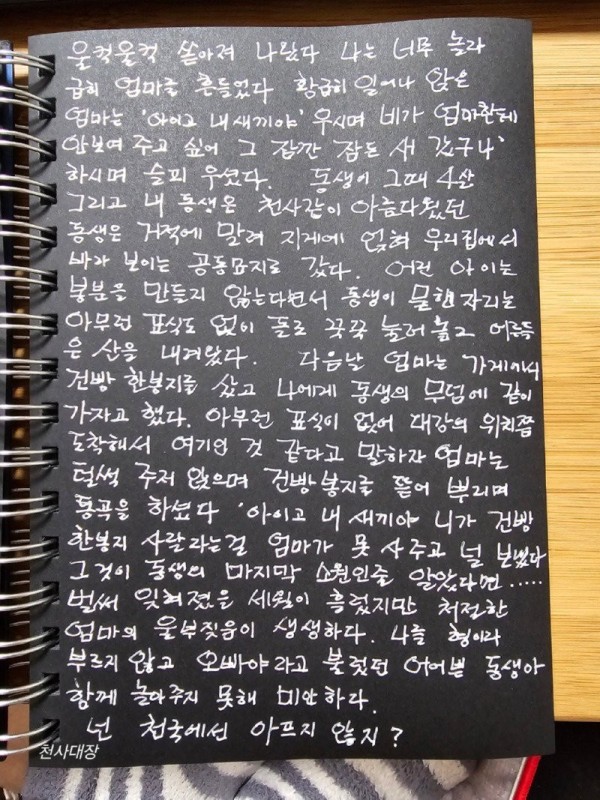 울컥울컥 쏟아져 나왔다 나는 너무 놀라
급히 엄마를 흔들었다 황급히 일어나 앉은
엄마는 '아이고 내새끼야' 우시며 비가 엄마한테
안보여 주고 싶어 그 잠깐 잠든 새 갔구나'
하시며 슬피 우셨다. 동생이 그때 4살
그리고 내 동생은 천사같이 아름다웠던
동생은 거적에 말려 지게에 얹혀 우리집에서
바라 보이는 공동묘지로 갔다. 어린 아이는
봉분을 만들지 않는다면서 동생이 묻힌자리는
아무런 표식도 없이 돌로 꾹꾹 눌러 놓고 어른들
은 산을 내려왔다. 다음날 엄마는 가게에서
건빵 한봉지를 샀고 나에게 동생의 무덤에 같이
가자고 했다. 아무런 표식이 없어 대강의 위치쯤
도착해서 여기인 것 같다고 말하자 엄마는
털썩 주저 앉으며 건빵봉지를 뜯어 뿌리며
통곡을 하셨다 '아이고 내 새끼야 니가 건빵
한봉지 사달라는걸 엄마가 못 사주고 널 보냈다
그것이 동생의 마지막 소원인줄 알았다면.....
벌써 잊혀졌을 세월이 흘렀지만 처절한
엄마의 울부짖음이 생생하다. 나를 형이라
부르지 않고 오빠야라고 불렀던 어여쁜 동생아
함께 놀아주지 못해 미안하다.
넌 천국에선 아프지 않지?
천사대장